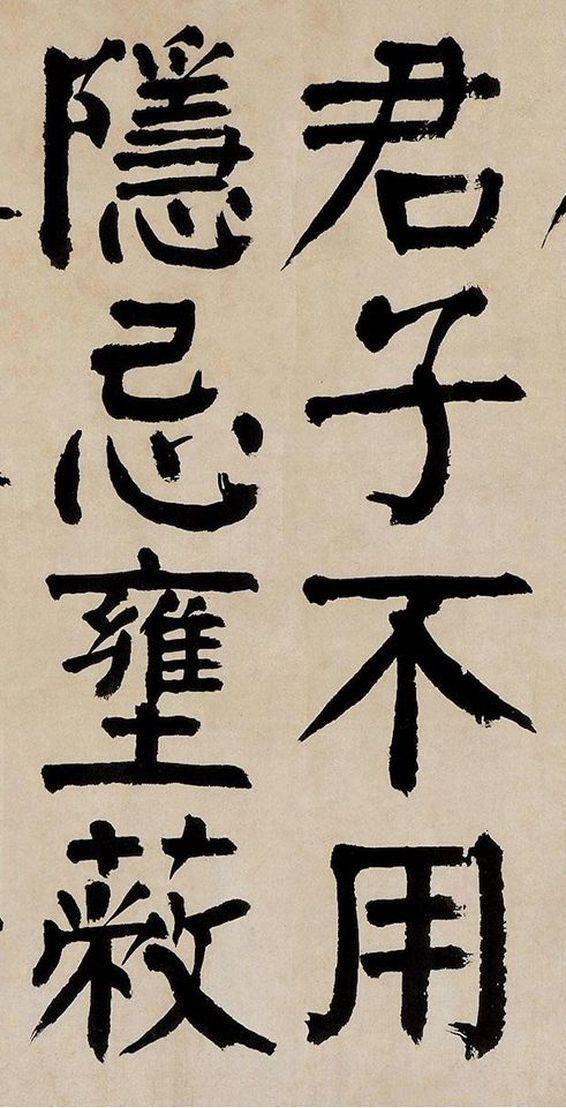 君子不用
隱忌壅蔽